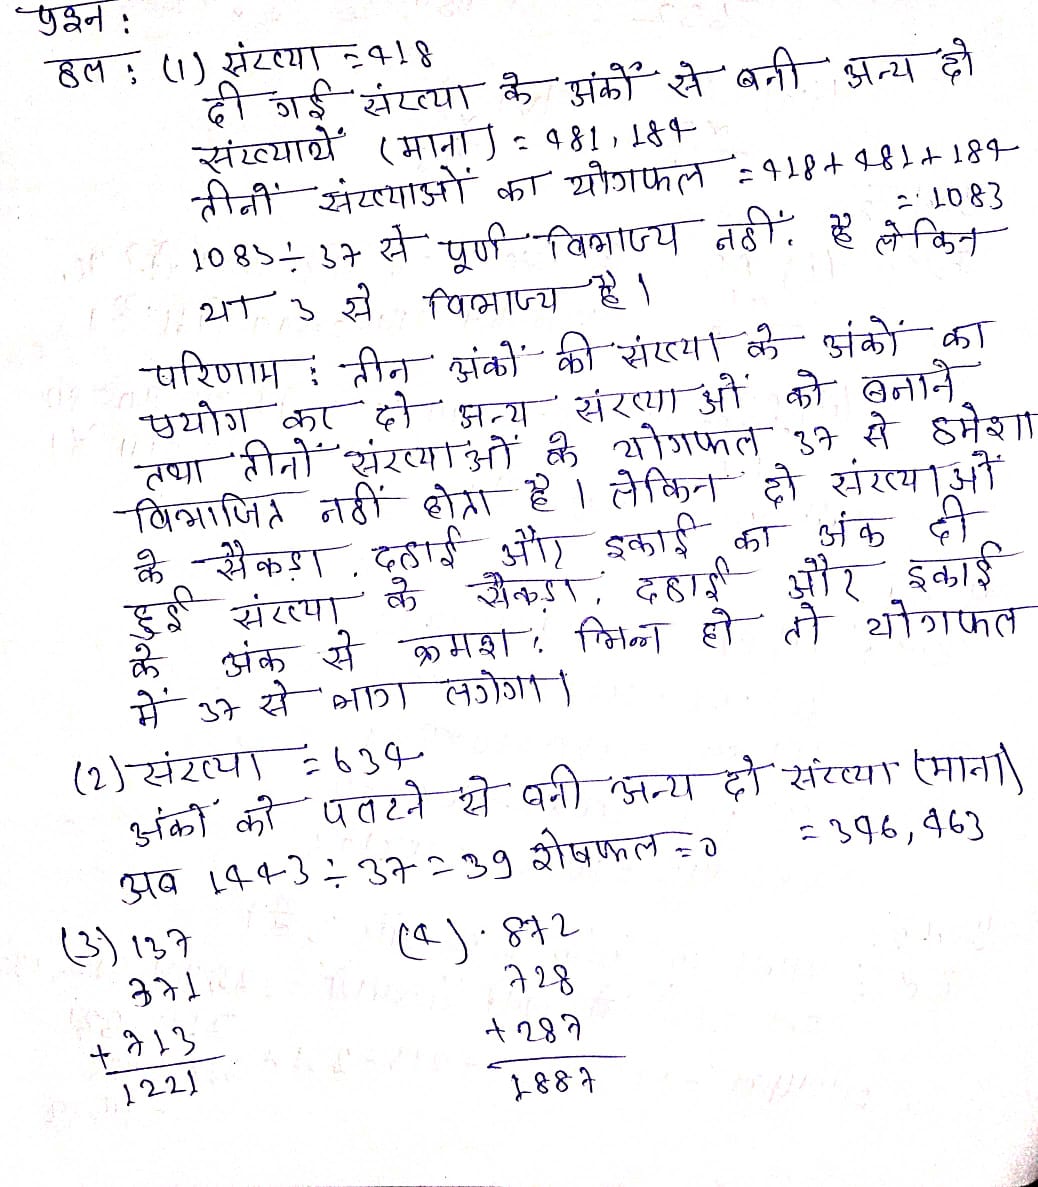 प्रश्न :
हल : (1) संख्या = 418
दी गई संख्या के अंकों से बनी अन्य दो
संख्यायें (माना) = 481, 184
तीनों संख्याओं का योगफल = 418 + 481 + 184
= 1083
1083 ÷ 37 से पूर्ण विभाज्य नहीं. है लेकिन
या 3 से विभाज्य है।
परिणाम : तीन अंकों की संख्या के अंकों का
प्रयोग कर दो अन्य संख्याओं को बनाने
तथा तीनों संख्याओं के योगफल 37 से हमेशा
विभाजित नहीं होता है। लेकिन दो संख्याओं
के सैकड़ा, दहाई और इकाई का अंक दी
हुई संख्या के सैकड़ा, दहाई और इकाई
के अंक से क्रमश: भिन्न हो तो योगफल
में 37 से भाग लगेगा।
(2) संख्या = 634
अंकों को पलटने से बनी अन्य दो संख्या (माना)
= 346, 463
अब 1443 ÷ 37 = 39 शेषफल = 0
(3) 137
371
+ 713
1221
(4) 872
728
+ 287
1887